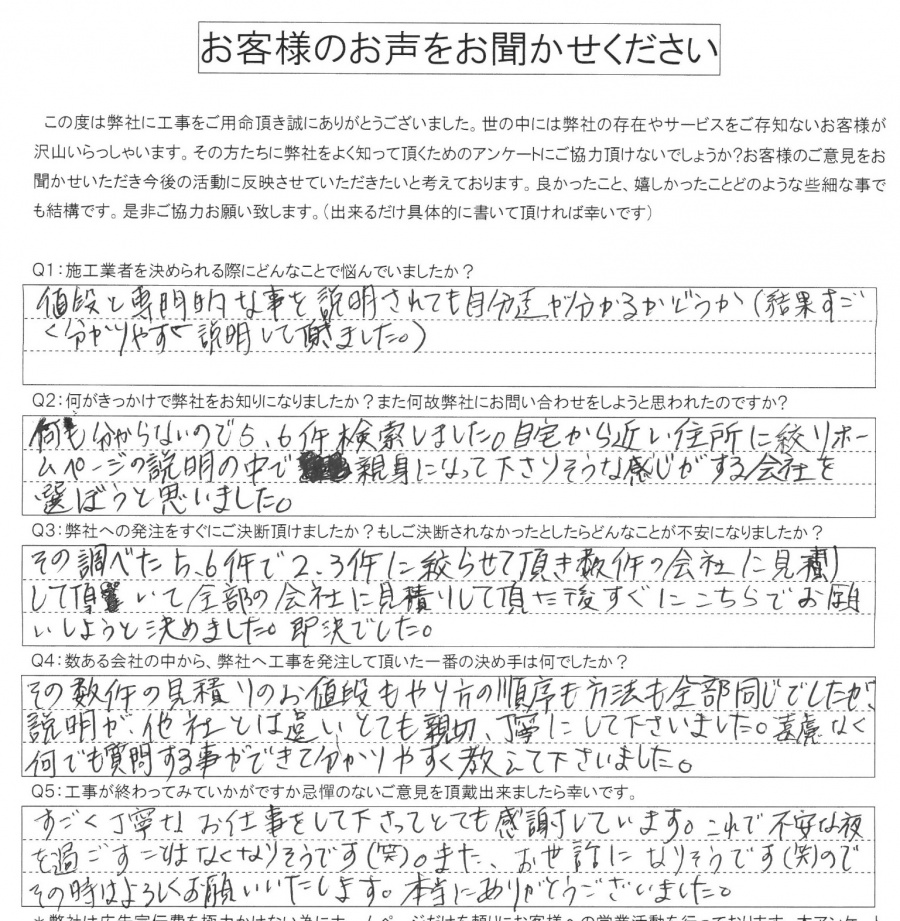 お客様のお声をお聞かせください
この度は弊社に工事をご用命頂き誠にありがとうございました。世の中には弊社の存在やサービスをご存知ないお客様が
沢山いらっしゃいます。その方たちに弊社をよく知って頂くためのアンケートにご協力頂けないでしょうか?お客様のご意見をお
聞かせいただき今後の活動に反映させていただきたいと考えております。良かったこと、嬉しかったことどのような些細な事で
も結構です。是非ご協力お願い致します。(出来るだけ具体的に書いて頂ければ幸いです)
Q1:施工業者を決められる際にどんなことで悩んでいましたか?
値段と専門的な事を説明されても自分達が分かるかどうか(結果すご
く分かりやすく説明して頂きました。)
Q2:何がきっかけで弊社をお知りになりましたか?また何故弊社にお問い合わせをしようと思われたのですか?
何も分からないので5、6件検索しました。自宅から近い住所に絞りホー
ムページの説明の中で親身になって下さりそうな感じがする会社を
選ぼうと思いました。
Q3:弊社への発注をすぐにご決断頂けましたか?もしご決断されなかったとしたらどんなことが不安になりましたか?
その調べた5、6件で2、3件に絞らせて頂き数件の会社に見積り
して頂いて全部の会社に見積りして頂た後すぐにこちらでお願
いしようと決めました。即決でした。
Q4:数ある会社の中から、弊社へ工事を発注して頂いた一番の決め手は何でしたか?
その数件の見積りのお値段もやり方の順序も方法も全部同じでしたが、
説明が、他社とは違いとても親切、丁寧にして下さいました。遠慮なく
何でも質問する事ができて分かりやすく教えて下さいました。
Q5:工事が終わってみていかがですか忌憚のないご意見を頂戴出来ましたら幸いです。
すごく丁寧なお仕事をして下さってとても感謝しています。これで不安な夜
を過ごすことはなくなりそうです(笑)。また、お世話になりそうです(笑)ので
その時はよろしくお願いいたします。本当にありがとうございました。
*弊社は広告宣伝費を極力かけない為にホームページだけを頼りにお客様への営業活動を行っております。本アンケート